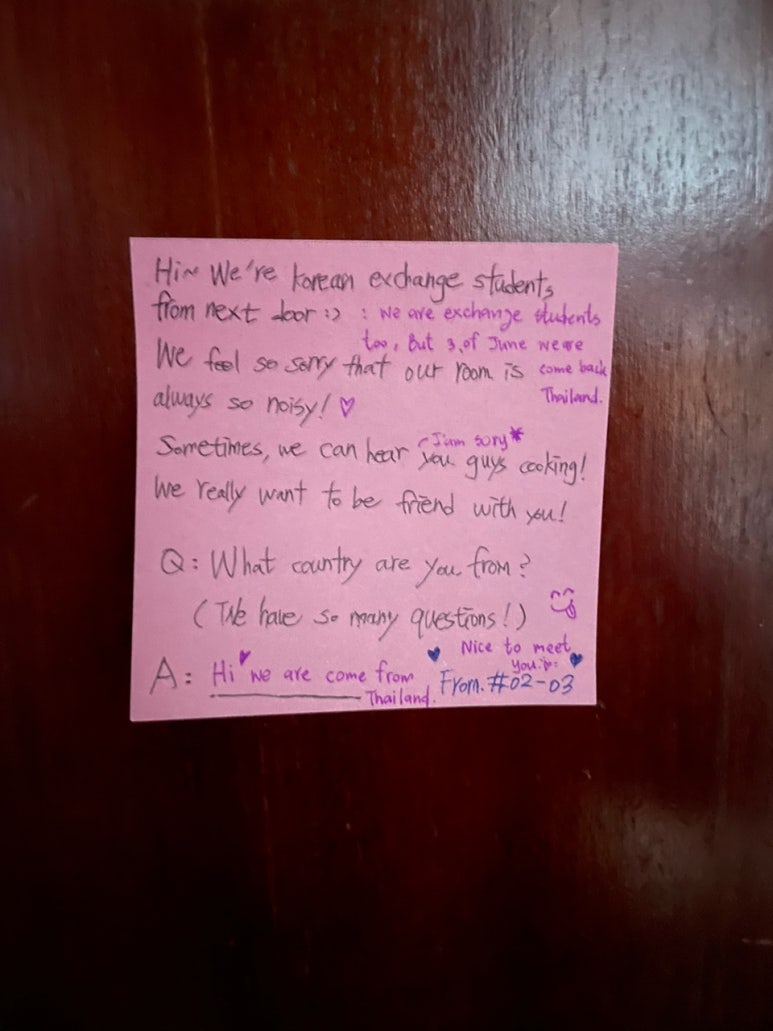 Hi~ We're korean exchange students
from next door :) : we are exchange students
too, But 3, of June we are
We feel so sorry that our room is come back
always so noisy! ♡ Thailand.
I'am sory*
Sometimes, we can hear you guys cooking!
We really want to be friend with you!
Q: What country are you from?
(We have so many questions!)
Nice to meet
you :
A: Hi ♥ we are come from
Thailand.
♥ ♥
From. #02-03